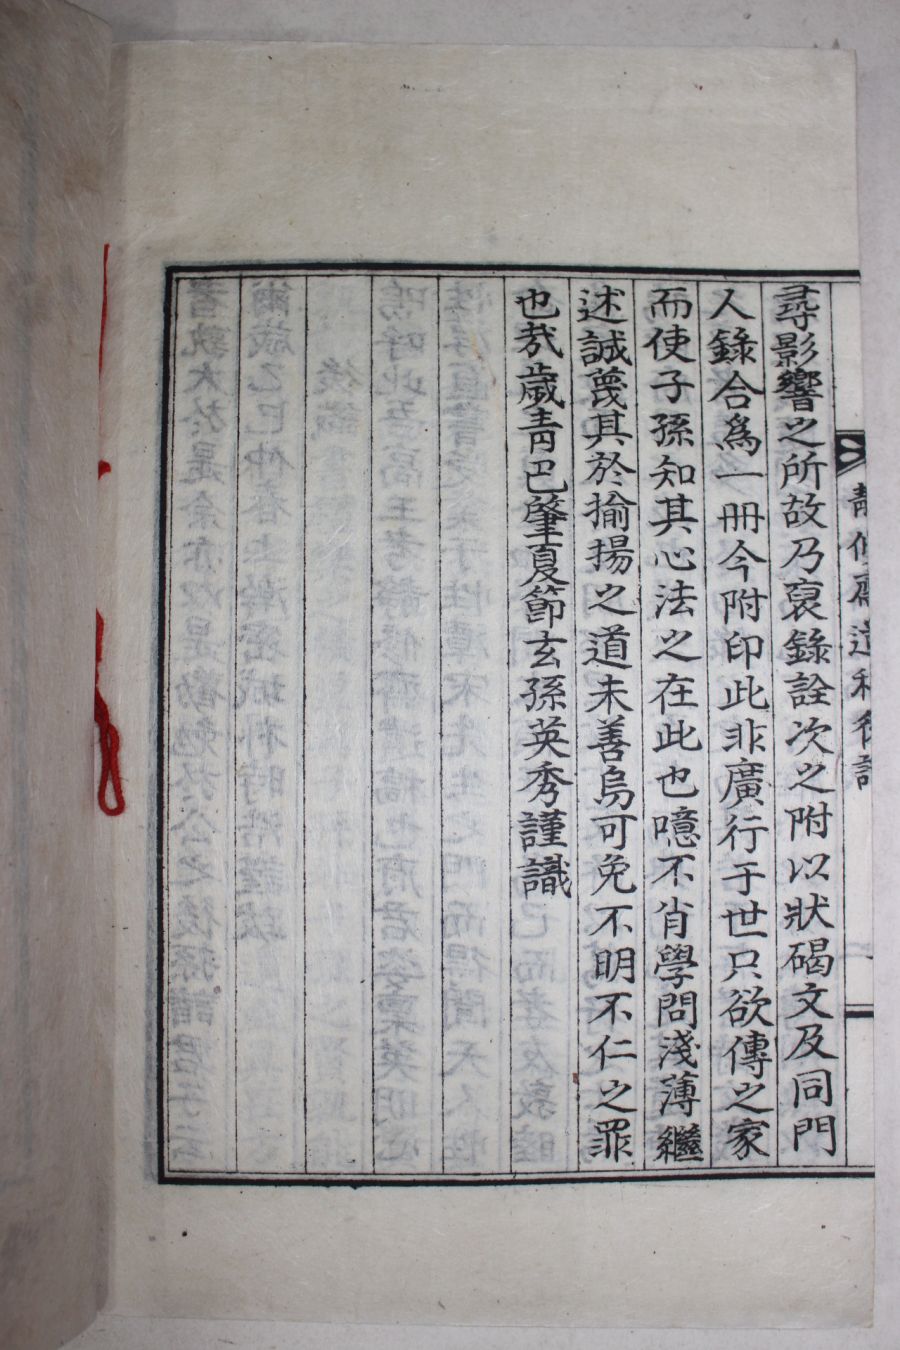 尋影響之所故乃裒錄詮次之附以狀碣文及同門
人錄合爲一冊今附印此非廣行于世只欲傳之家
而使子孫知其心法之在此也噫不肖學問淺薄繼
述誠蔑其於揄揚之道未善烏可免不明不仁之罪
也㢤歲靑巴肇夏節玄孫英秀謹識
靜修齋遺稿後識